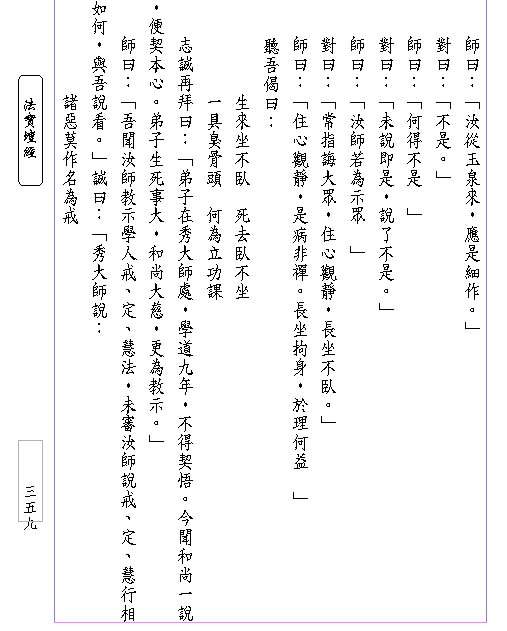 師曰：「汝從玉泉來，應是細作。」
對曰：「不是。」
師曰：「何得不是　」
對曰：「未說即是，說了不是。」
師曰：「汝師若為示眾　」
對曰：「常指誨大眾，住心觀靜，長坐不臥。」
師曰：「住心觀靜，是病非禪。長坐拘身，於理何益　」
聽吾偈曰：
生來坐不臥　死去臥不坐
一具臭骨頭　何為立功課
志誠再拜曰：「弟子在秀大師處，學道九年，不得契悟。今聞和尚一說
，便契本心。弟子生死事大，和尚大慈，更為教示。」
師曰：「吾聞汝師教示學人戒、定、慧法，未審汝師說戒、定、慧行相
如何，與吾說看。」誠曰：「秀大師說：
諸惡莫作名為戒
法寶壇經
三五九